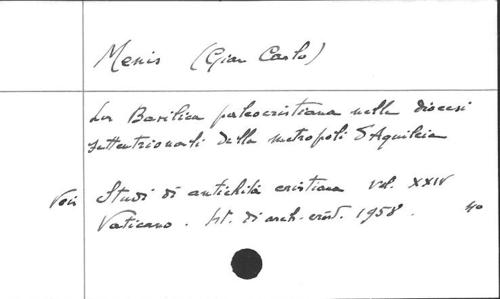 Menis (Gian Carlo)
La Basilica paleocristiana nelle diocesi
settentrionali della metropoli d'Aquileia
Voir Studi di antichità cristiana vol. XXIV
Vaticano. Ist. di arch. crist. 1958. 40